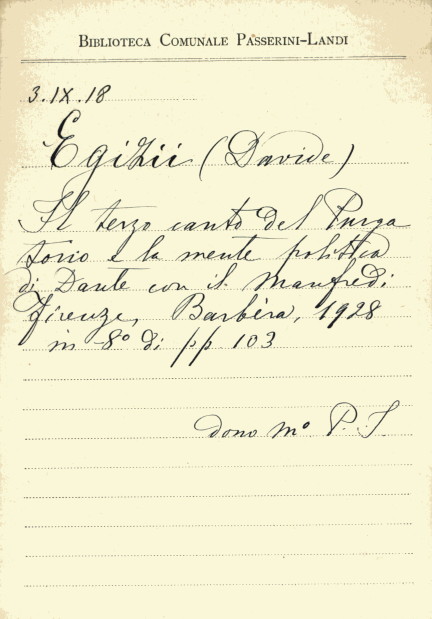 BIBLIOTECA COMUNALE PASSERINI-LANDI
3.IX.18
Egizii (Davide)
Il terzo canto del Purga
torio e la mente politica
di Dante con il Manfredi
Firenze, Barbèra, 1928
in 8º di pp 103
dono mº P. S.